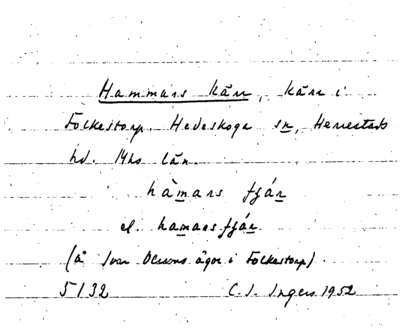 Hammars kärr, kärr i
Folkestorp. Hedeskoga sn, Herrestads
hd. Mhs län.
hàmars tjár
el. hamarstjár.
(å Ivar Olssons ägor i Folkestorp).
5/32 C. I. Ingers 1952